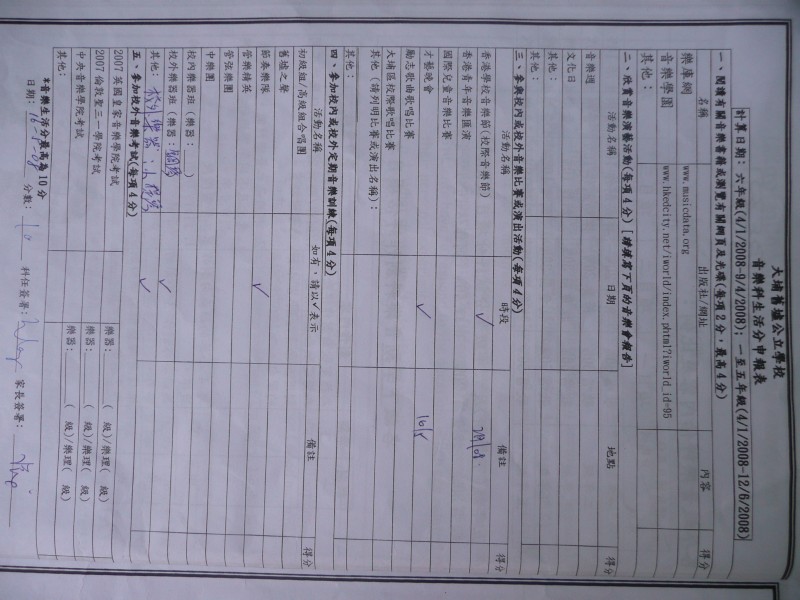 大埔舊墟公立學校
音樂科生活分申報表
計算日期: 六年級(4/1/2008-9/4/2008); 一至五年級(4/1/2008-12/6/2008)
一、閱讀有關音樂書籍或瀏覽有關網頁及光碟(每項2分，最高4分)
名稱 出版社/網址 內容 得分
樂庫網 www.musicdata.org
音樂學園 www.hkedcity.net/iworld/index.phtml?iworld_id=95
其他:
二、欣賞音樂演藝活動(每項4分)[請填寫下頁的音樂會報告]
活動名稱 日期 地點 得分
音樂週
文化日
其他:
其他:
三、參與校內或校外音樂比賽或演出活動(每項4分)
活動名稱 時段 備註 得分
香港學校音樂節(校際音樂節) ✓
香港青年音樂匯演
國際兒童音樂比賽
才藝晚會 ✓ 16/5
勵志歌曲歌唱比賽
大埔區校際歌唱比賽
其他(請列明比賽或演出名稱):
其他:
四、參加校內或校外定期音樂訓練(每項4分)
活動名稱 如有，請以✓表示 備註 得分
初級組/高級組合唱團
舊墟之聲
節奏樂隊 ✓
管樂精英
管弦樂團
中樂團
校內樂器班(樂器:____)
校外樂器班(樂器: ✓
其他: 校外樂器:小 ✓
五、參加校外音樂考試(每項4分)
2007 英國皇家音樂學院考試 樂器:____( 級)/樂理( 級)
2007 倫敦聖三一學院考試 樂器:____( 級)/樂理( 級)
中央音樂學院考試 樂器:____( 級)/樂理( 級)
其他: 樂器:____( 級)/樂理( 級)
*音樂生活分最高為 10 分
日期: 分數: 10 科任簽署: 家長簽署: